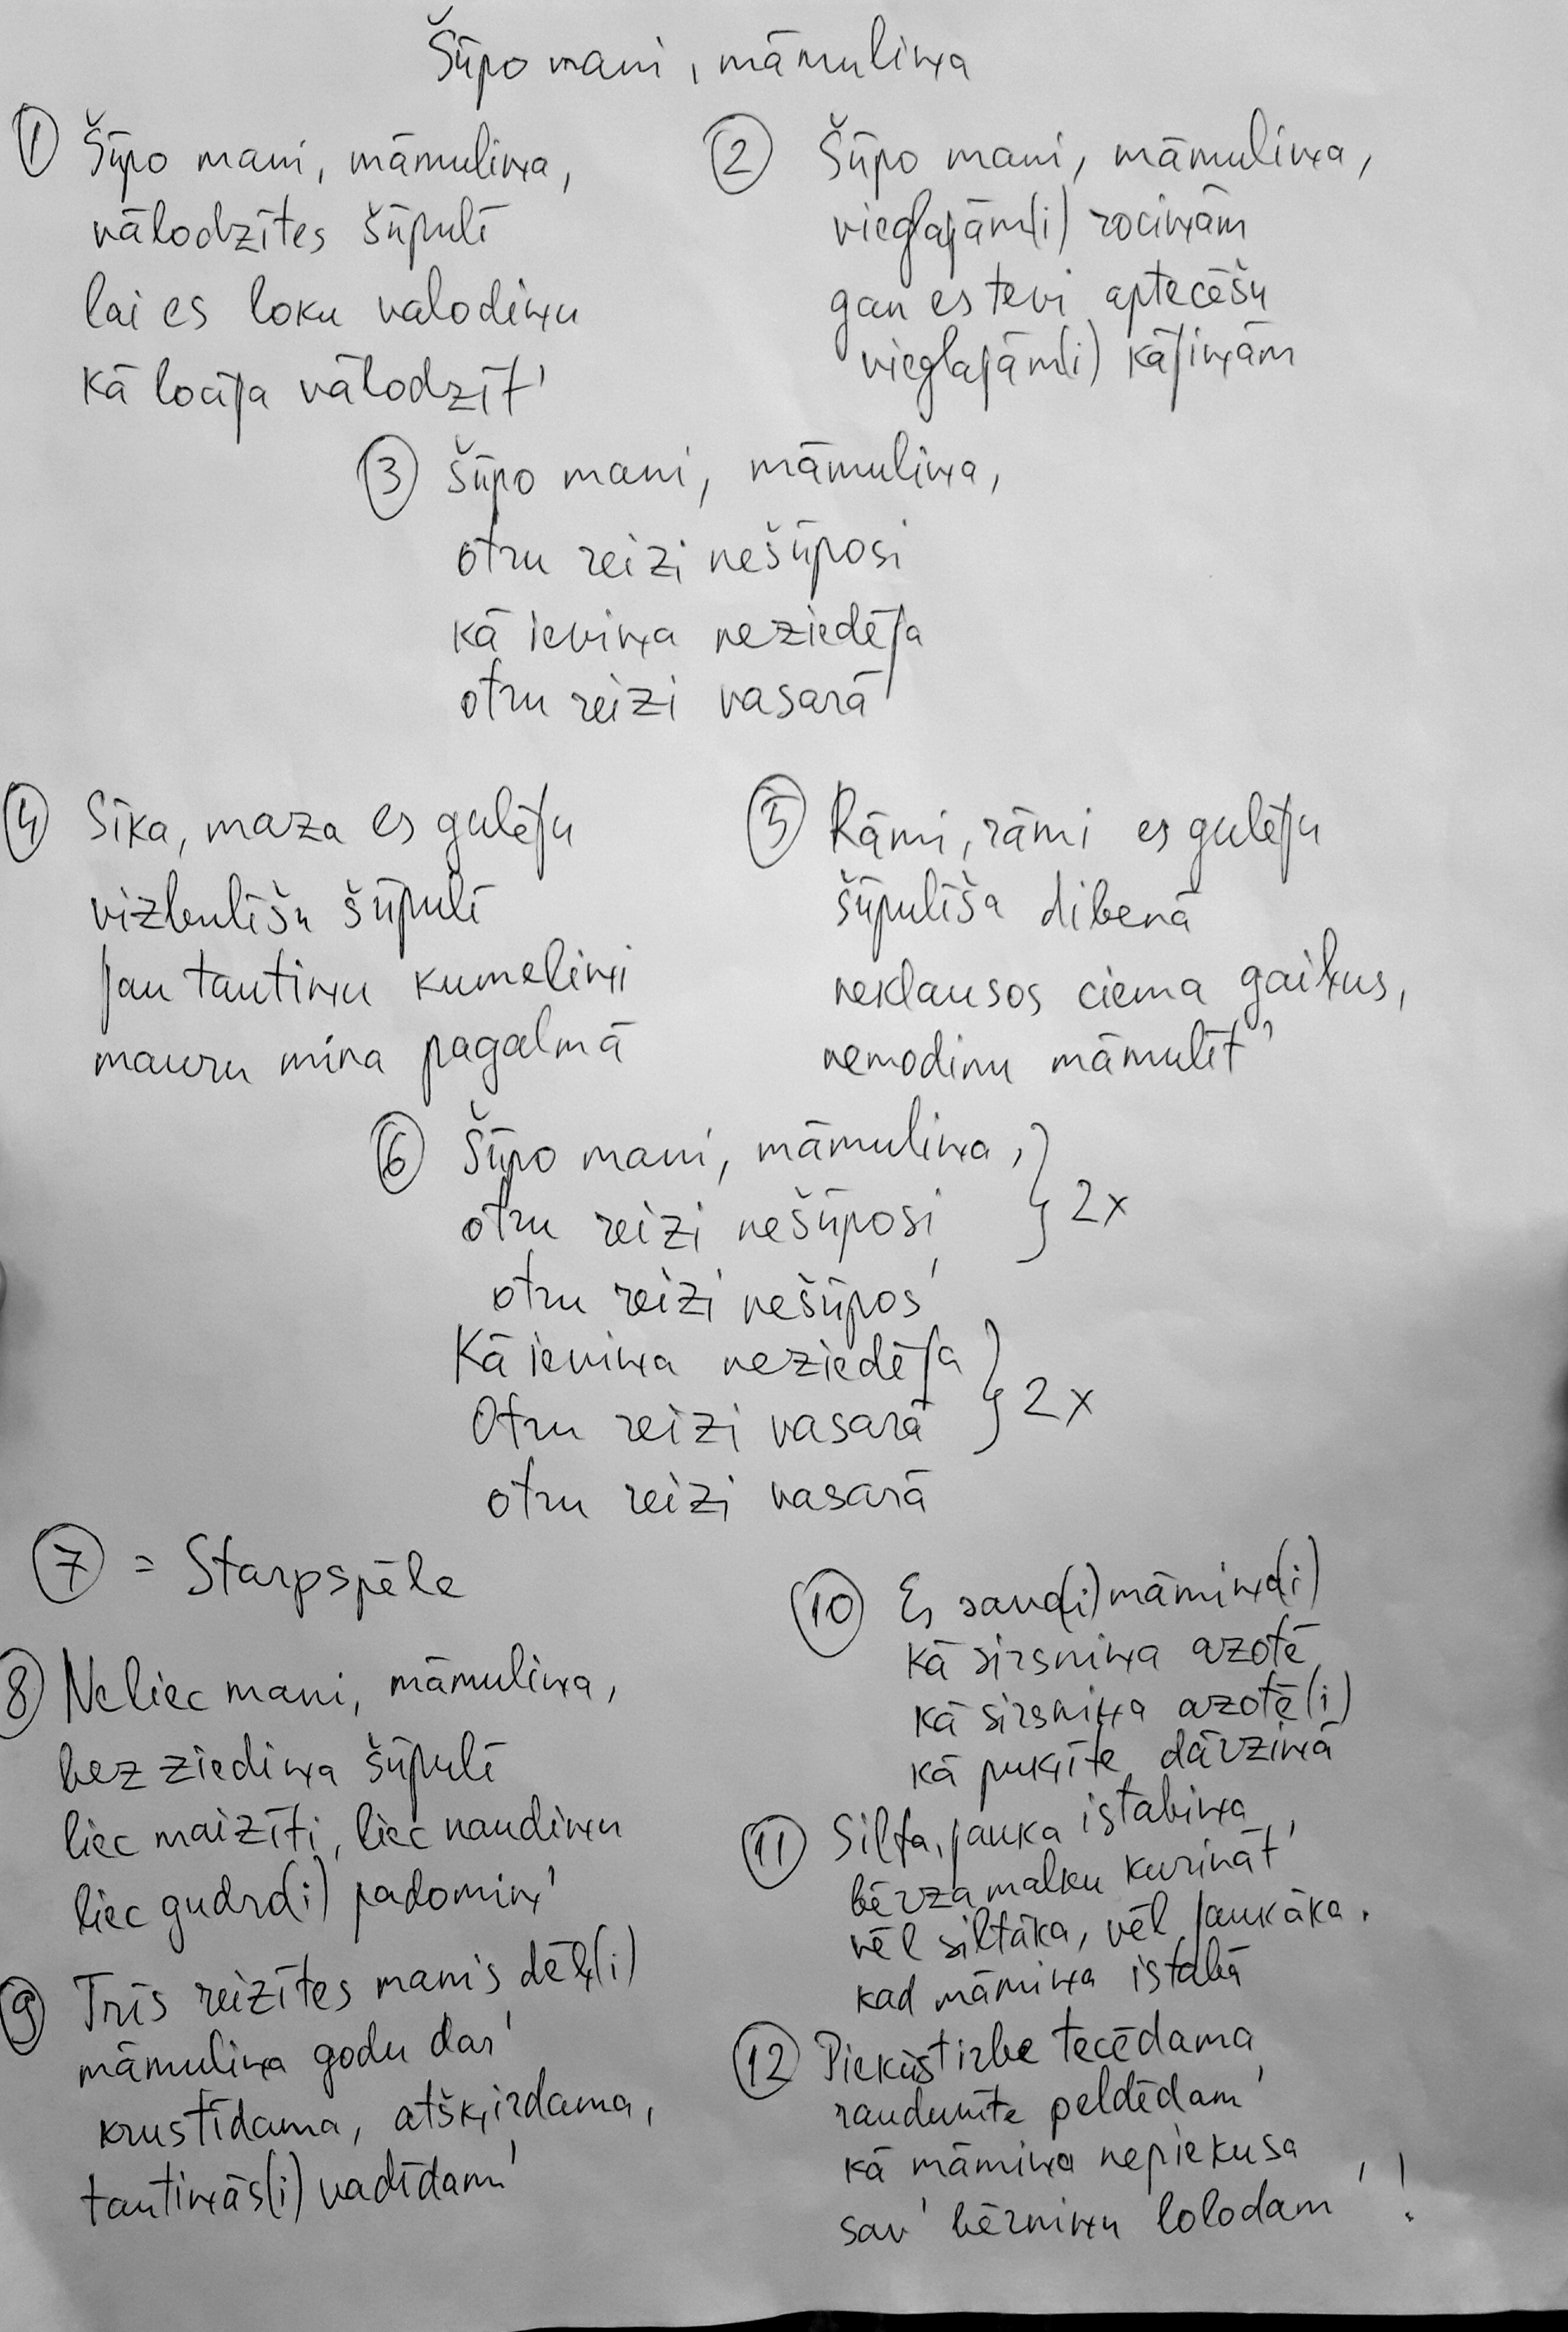 Šūpo mani, māmuliņa
① Šūpo mani, māmuliņa,
vālodzītes šūpulī
lai es loku valodiņu
kā locīja vālodzīt'
② Šūpo mani, māmuliņa,
vieglajām(i) rociņām
gan es tevi aptecēšu
vieglajām(i) kājiņām
③ Šūpo mani, māmuliņa,
otru reizi nešūposi
kā ieviņa neziedēja
otru reizi vasarā
④ Sīka, maza es gulēju
vizbulīšu šūpulī
jau tautiņu kumeliņi
mauru mina pagalmā
⑤ Rāmi, rāmi es gulēju
šūpulīša dibenā
neklausos ciema gaiļus,
nemodinu māmulīt'
⑥ Šūpo mani, māmuliņa, } 2x
otru reizi nešūposi
otru reizi nešūpos'
Kā ieviņa neziedēja } 2x
Otru reizi vasarā
otru reizi vasarā
⑦ = Starpspēle
⑧ Neliec mani, māmuliņa,
bez ziediņa šūpulī
liec maizīti, liec naudiņu
liec gudr(i) padomiņ'
⑨ Trīs reizītes manis dēļ(i)
māmuliņa godu dar'
krustīdama, atšķirdama,
tautiņās(i) vadīdam'
⑩ Es sav(i) māmiņ(i)
kā sirsniņa azotē
kā sirsniņa azotē(i)
kā puķīte dārziņā
⑪ Silta, jauka istabiņa,
bērza malku kurināt'
vēl siltāka, vēl jaukāka,
kad māmiņa istabā
⑫ Piekūst irbe tecēdama
raudunīte peldēdam'
kā māmiņa nepiekusa
sav' bērniņu lolodam'!